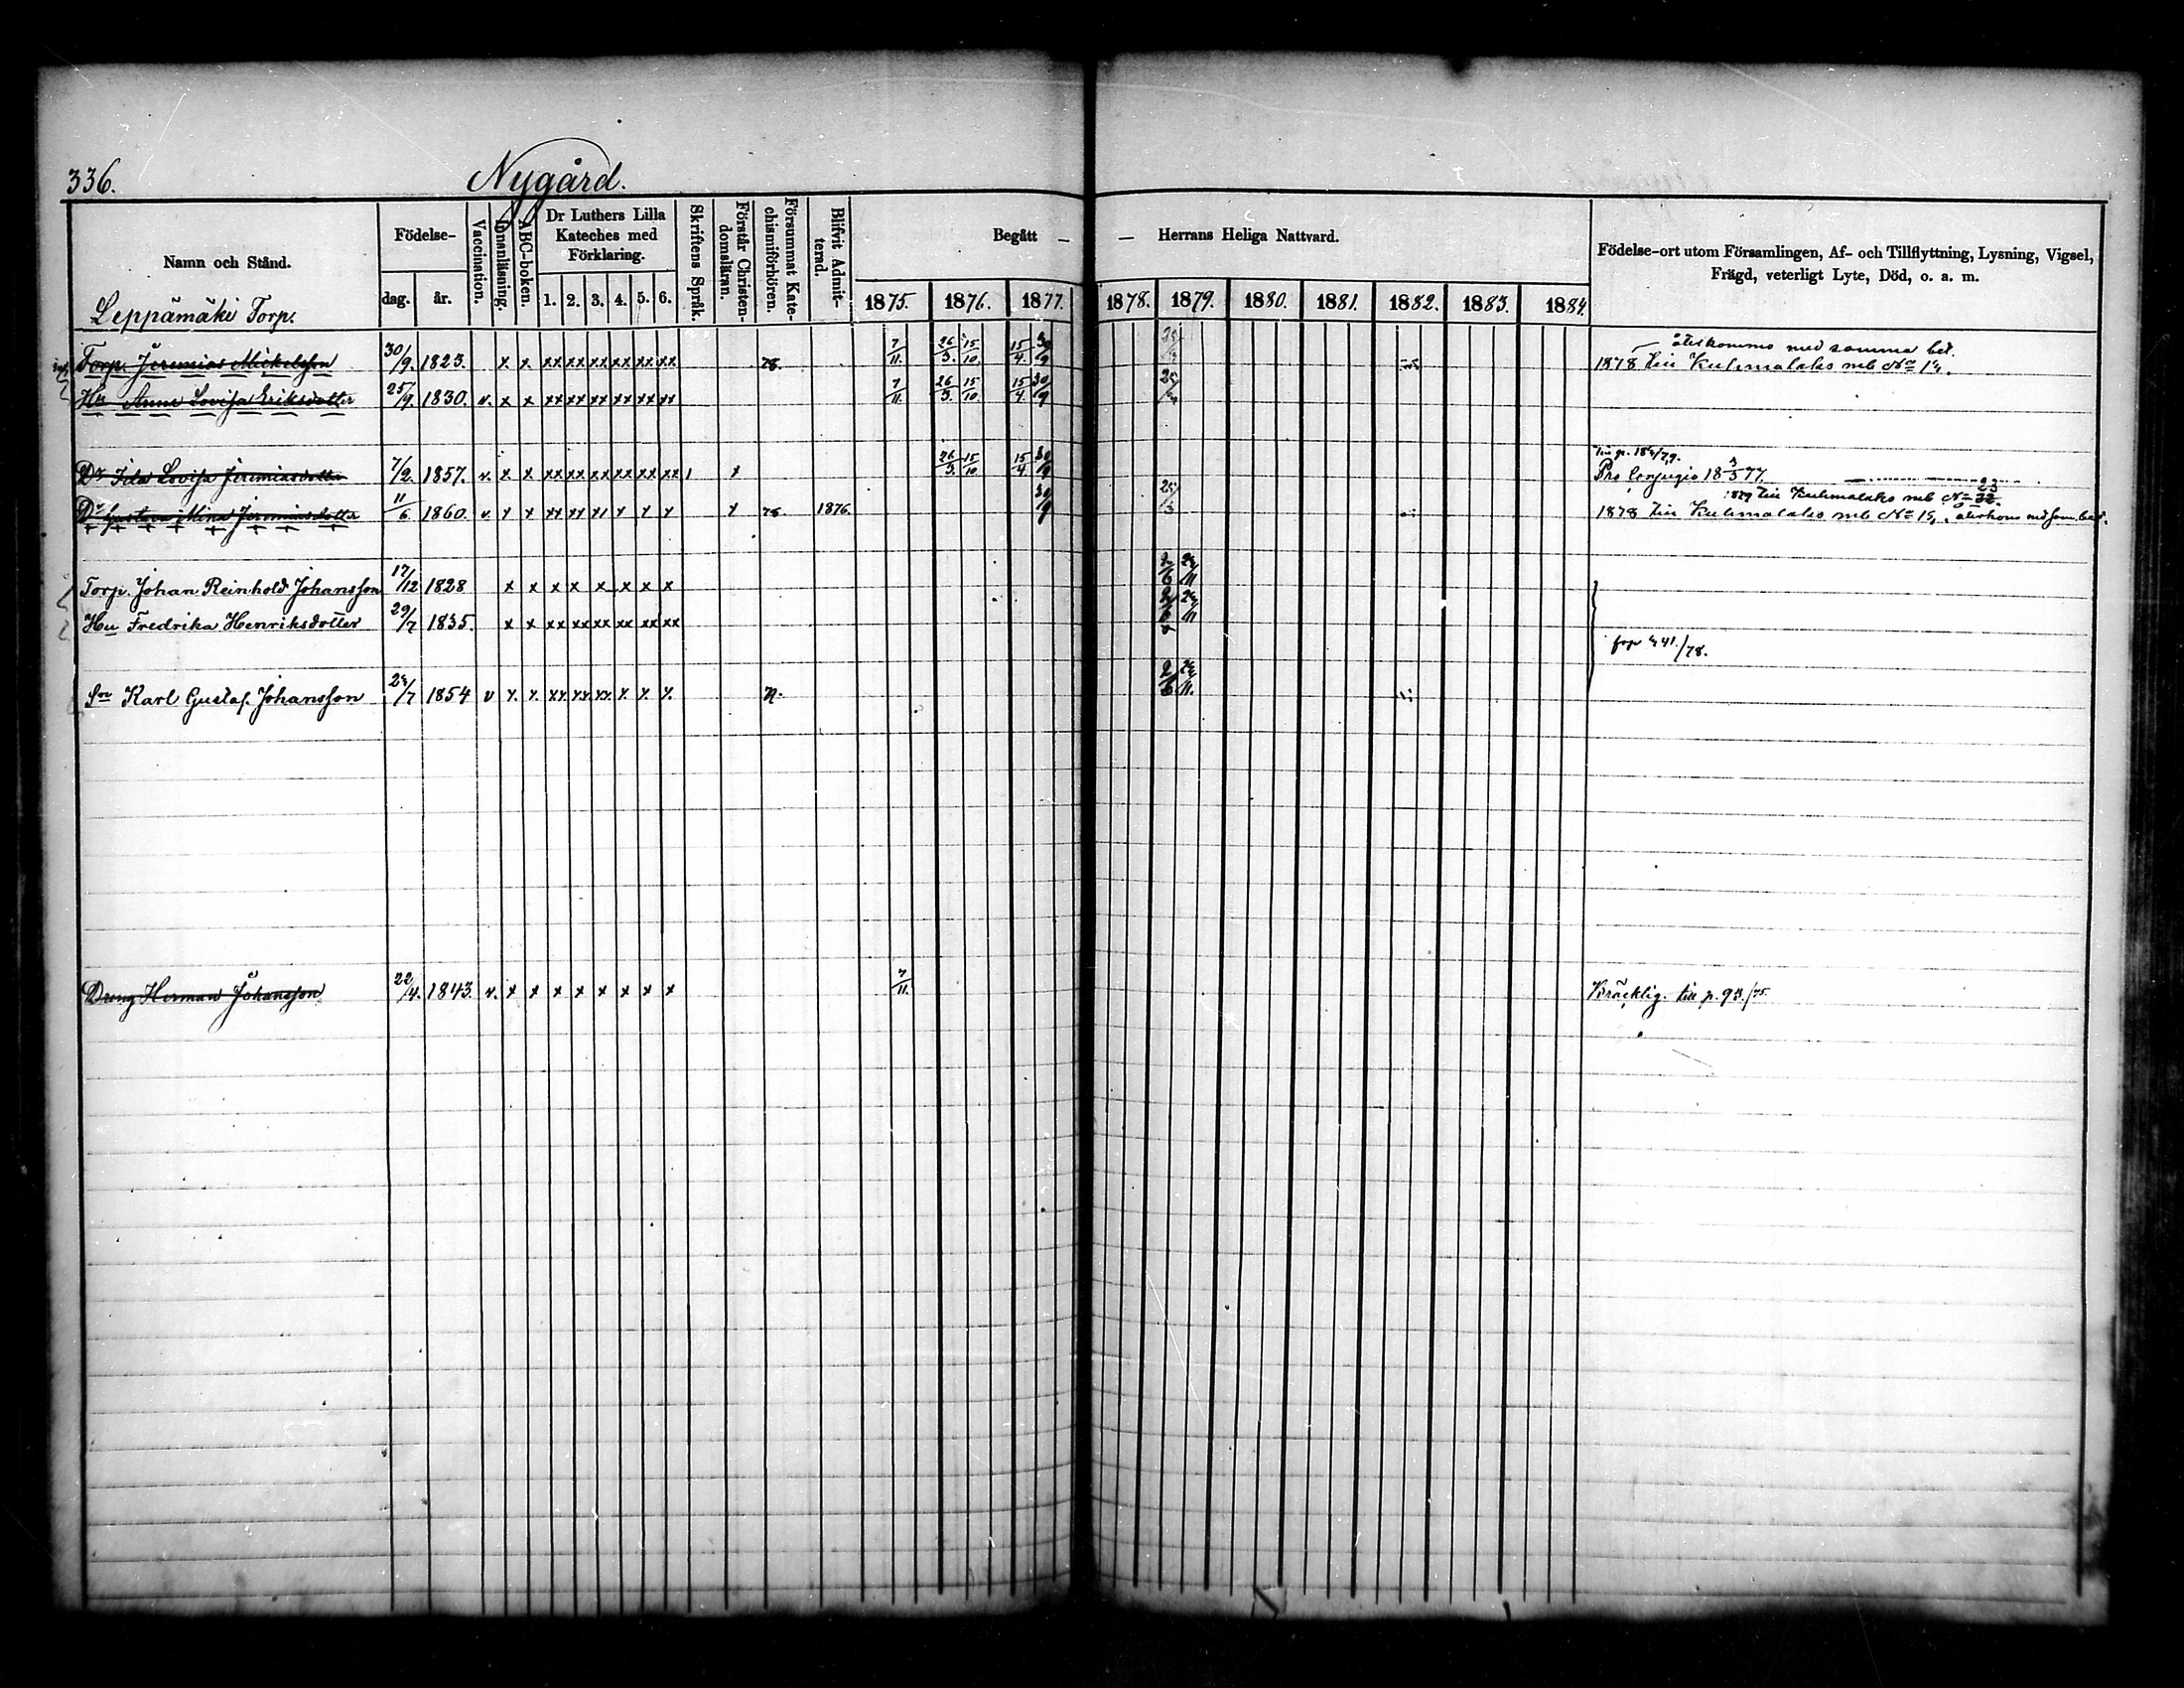 336.
Nygård.
Namn och Stånd.
Födelse-
dag.
år.
Vaccination.
Innanläsning.
ABC-boken.
Dr Luthers Lilla
Kateches med
Förklaring.
1. 2. 3. 4. 5. 6.
Skriftens Språk.
Förstår Christen-
domsläran.
Försummat Kate-
chismiförhören.
Blifvit Admit-
terad.
Begått —
— Herrans Heliga Nattvard.
1875. 1876. 1877. 1878. 1879. 1880. 1881. 1882. 1883. 1884.
Födelse-ort utom Församlingen, Af- och Tillflyttning, Lysning, Vigsel,
Frägd, veterligt Lyte, Död, o. a. m.
Leppämäki Torp.
återkommo med samma bet.
Torp. Jeremias Mickelsson 30/9. 1823. x x xx xx xx xx xx xx 78. 7/11. 26/3. 15/10. 15/4. 30/9 1878 till Kuhmalaks mb No 14.
Hu Anna Lovisa Eriksdotter 25/9. 1830. v. x x xx xx xx xx xx xx 7/11. 26/3. 15/10. 15/4. 30/9
Dr Ida Lovisa Jeremiasdotter 7/2. 1857. v. x x xx xx xx xx xx xx 1 x 26/3. 15/10. 15/4. 30/9 Pro 18 3/5 77.
1879 till Kuhmalaks mb No 23
Dr Gustava Mina Jeremiasdotter 11/6 1860. v. x x xx xx x x x x 78. 1876. 30/9 1878 till Kuhmalaks mb No 15, återkom med sam. bet.
Torp. Johan Reinhold Johansson 17/12 1828 x x x x x x x x
Hu Fredrika Henriksdotter 29/7 1835. x x xx xx xx xx xx xx
frp 441./78.
Sn Karl Gustaf Johansson 24/7 1854 v x x xx xx xx x x x
Dreng Herman Johansson 22/4. 1843. v. x x x x x x x x 7/11. Bräcklig. till p. 93./75.